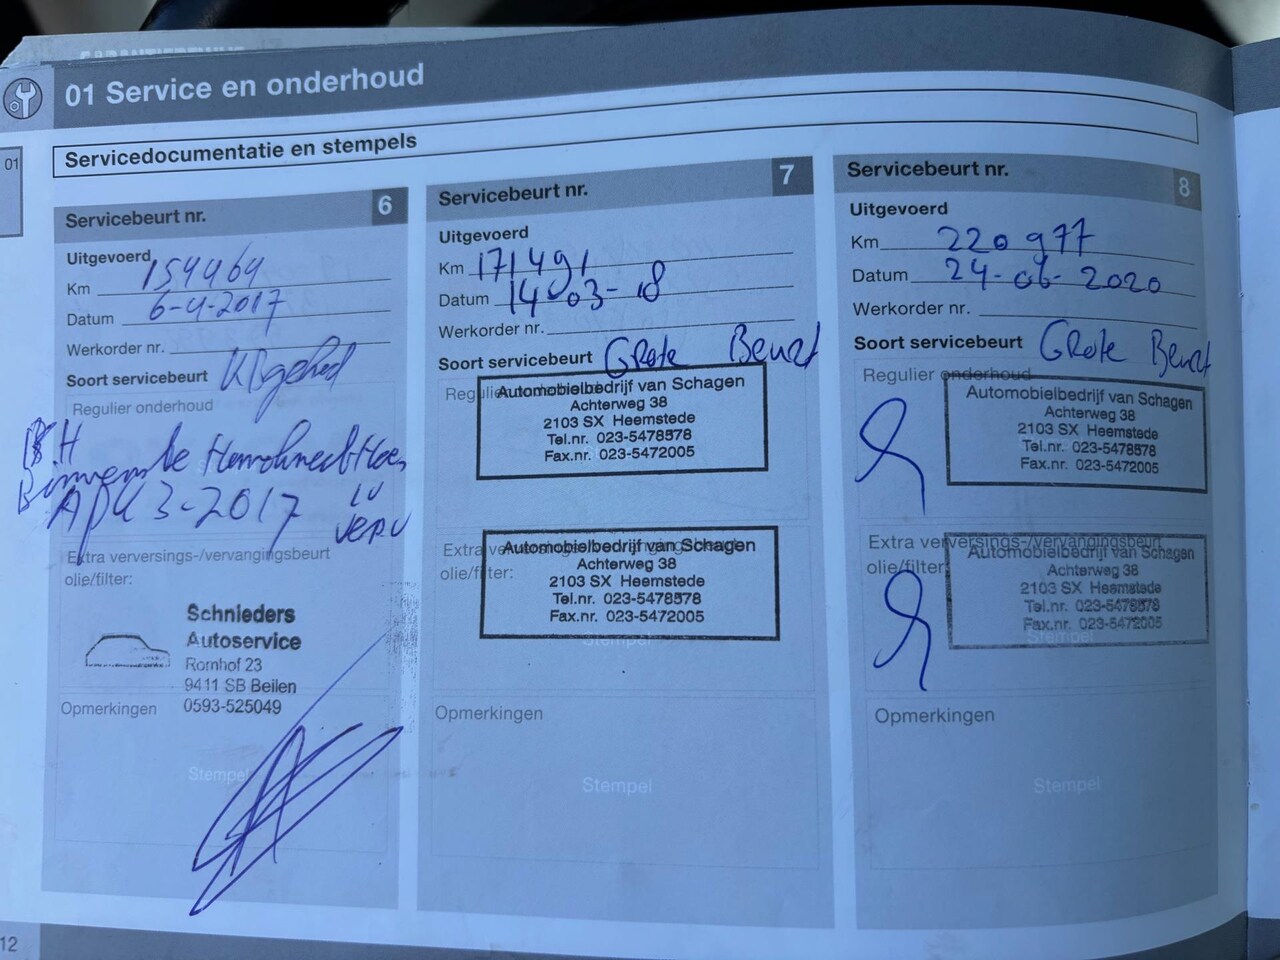 01 Service en onderhoud
01
Servicedocumentatie en stempels
Servicebeurt nr. 6
Uitgevoerd
Km 154464
Datum 6-4-2017
Werkorder nr.
Soort servicebeurt
Regulier onderhoud
APK 3-2017
Extra verversings-/vervangingsbeurt
olie/filter:
Schnieders
Autoservice
Rornhof 23
9411 SB Beilen
0593-525049
Opmerkingen
Stempel
Servicebeurt nr. 7
Uitgevoerd
Km 171491
Datum 14-03-18
Werkorder nr.
Soort servicebeurt Grote Beurt
Regulier onderhoud
Automobielbedrijf van Schagen
Achterweg 38
2103 SX Heemstede
Tel.nr. 023-5478578
Fax.nr. 023-5472005
Extra verversings-/vervangingsbeurt
olie/filter:
Automobielbedrijf van Schagen
Achterweg 38
2103 SX Heemstede
Tel.nr. 023-5478578
Fax.nr. 023-5472005
Stempel
Opmerkingen
Stempel
Servicebeurt nr. 8
Uitgevoerd
Km 220977
Datum 24-06-2020
Werkorder nr.
Soort servicebeurt Grote Beurt
Regulier onderhoud
Automobielbedrijf van Schagen
Achterweg 38
2103 SX Heemstede
Tel.nr. 023-5478578
Fax.nr. 023-5472005
Extra verversings-/vervangingsbeurt
olie/filter:
Automobielbedrijf van Schagen
Achterweg 38
2103 SX Heemstede
Tel.nr. 023-5478578
Fax.nr. 023-5472005
Stempel
Opmerkingen
Stempel
12